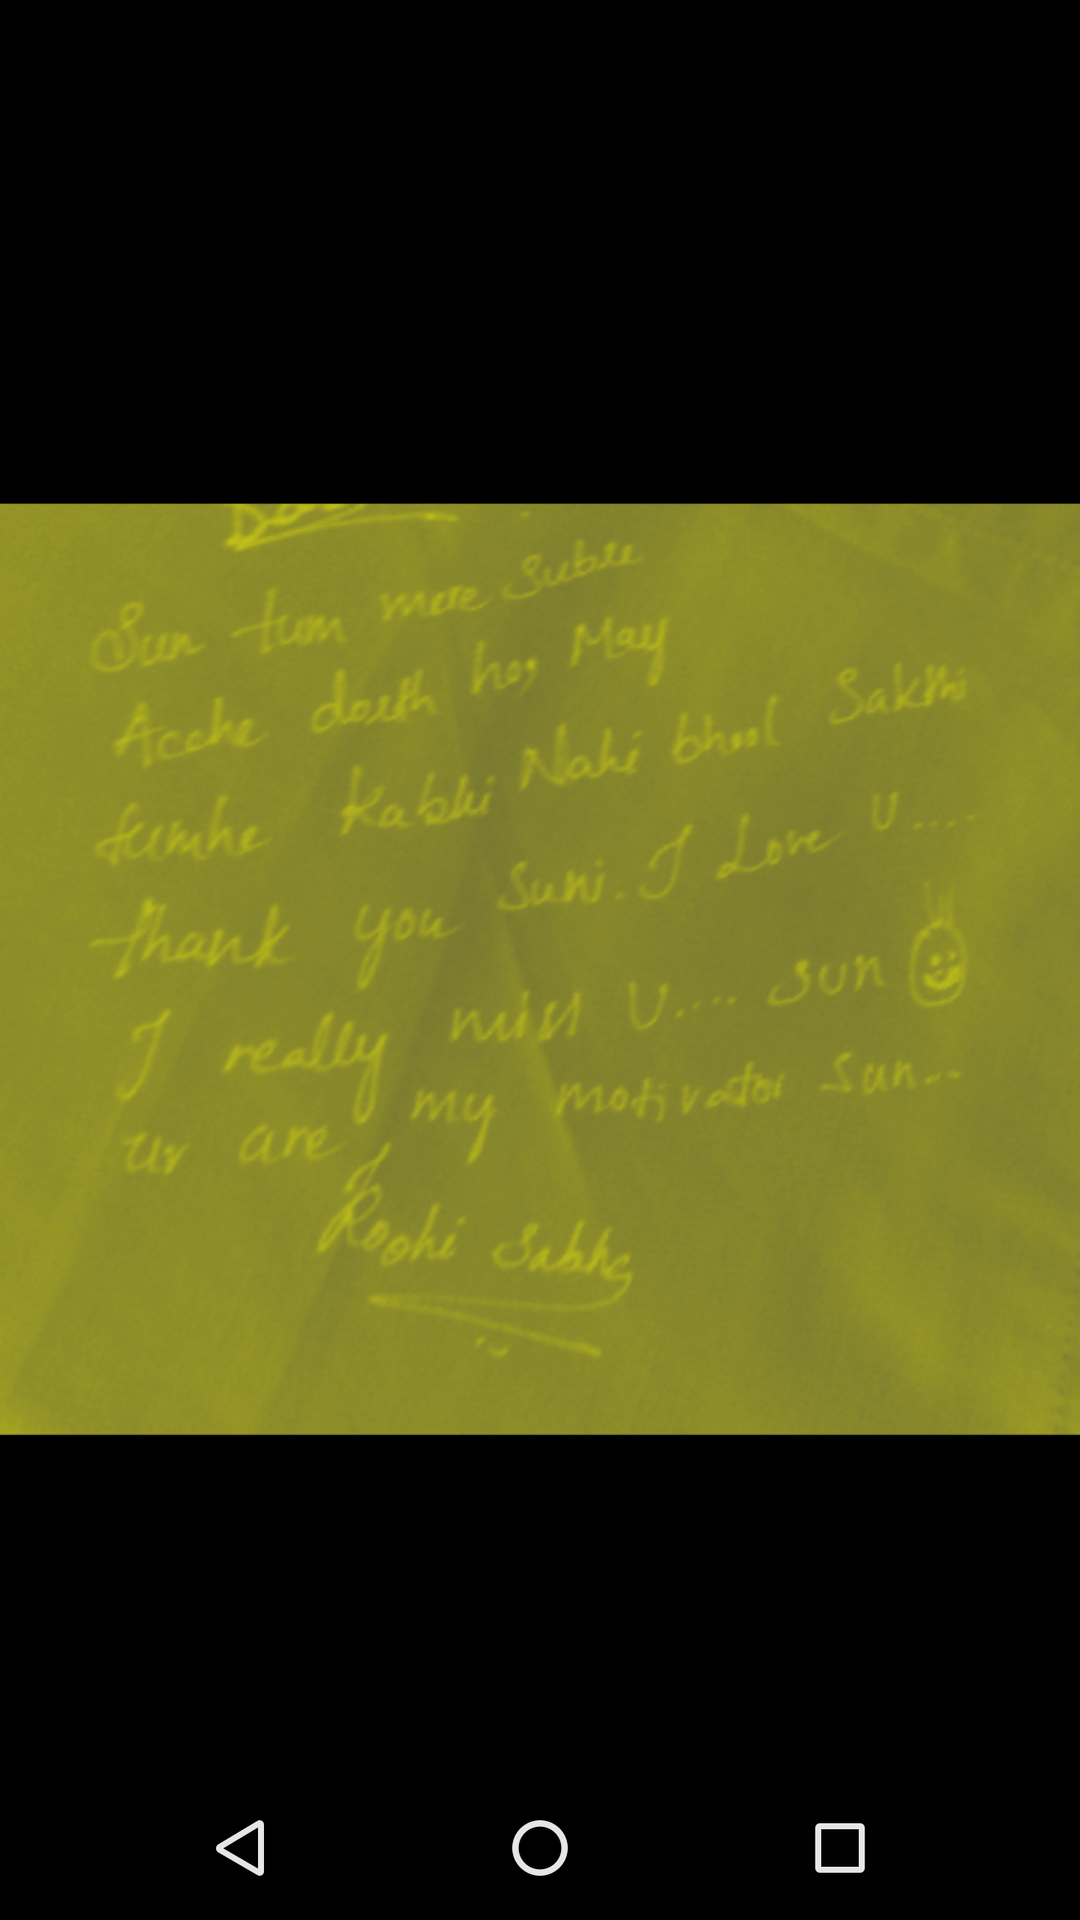 Sun tum mere Subse
Acche dosth ho, May
tumhe Kabhi Nahi bhool Sakthi
thank you Suni. I Love U....
I really miss U.... sun
Ur are my motivator Sun..
Roohi Sabhg